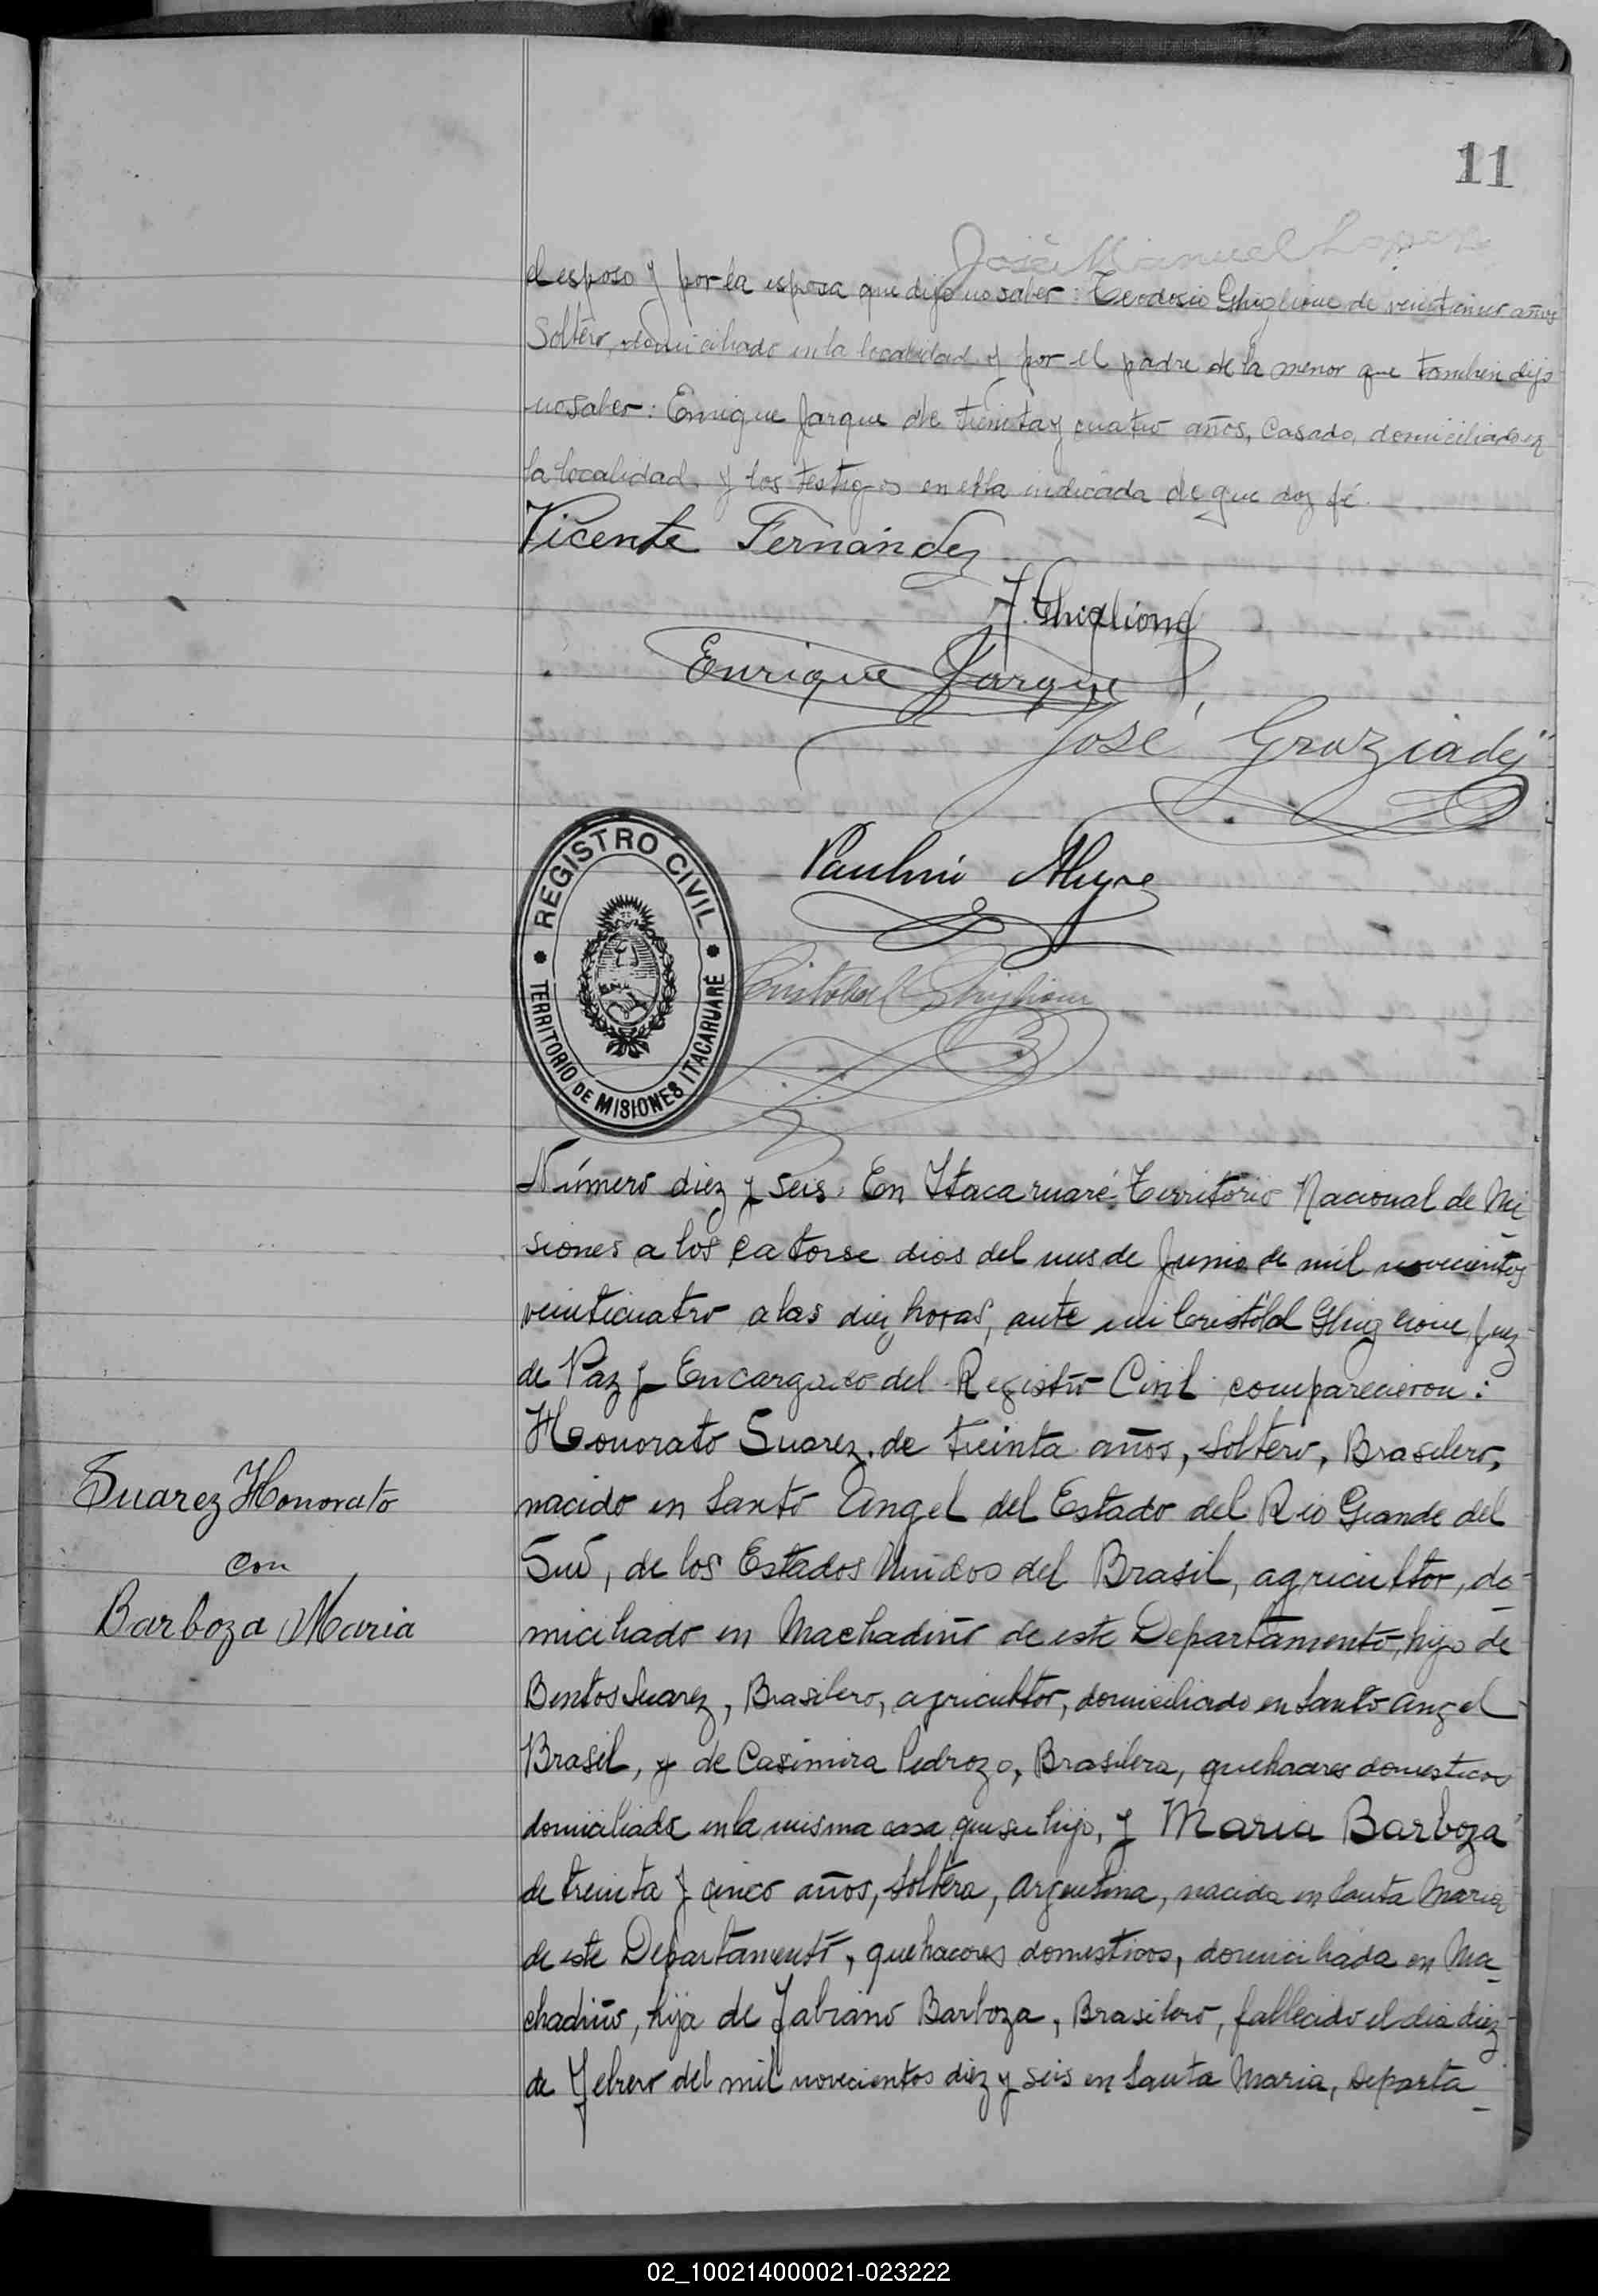 11
José Manuel Lopez
el esposo y por la esposa que dijo no saber: Teodosio Ghiglione de veinticinco años
Soltero, domiciliado en la localidad y por el padre de la menor que tambien dijo
no saber: Enrique Jarque de treinta y cuatro años, Casado, domiciliado en
la localidad y los testigos en ella indicada de que doy fé.
Vicente Fernández
T. Ghiglione
Enrique Jarque
José Graziadei
Paulini
Cristobal Ghiglione
REGISTRO CIVIL
TERRITORIO DE MISIONES ITACARUARÉ
Número diez y seis. En Itacaruaré Territorio Nacional de Mi
siones a los catorse dias del mes de Junio de mil novecientos
veinticuatro a las diez horas, ante mi Cristobal Ghiglione Juez
de Paz y Encargado del Registro Civil comparecieron:
Honorato Suarez, de treinta años, soltero, Brasilero,
nacido en Santo Angel del Estado del Rio Grande del
Sud, de los Estados Unidos del Brasil, agricultor, do-
miciliado en Machadiño de este Departamento, hijo de
Bentos Suarez, Brasilero, agricultor, domiciliado en Santo Angel
Brasil, y de Casimira Pedrozo, Brasilera, quehaceres domesticos
domiciliada en la misma casa que su hijo, y Maria Barboza
de treinta y cinco años, soltera, Argentina, nacida en Santa Maria
de este Departamento, quehaceres domesticos, domiciliada en Ma-
chadiño, hija de Fabiano Barboza, Brasilero, fallecido el dia diez
de Febrero del mil novecientos diez y seis en Santa Maria, Departa-
Suarez Honorato
con
Barboza Maria
02_100214000021-023222